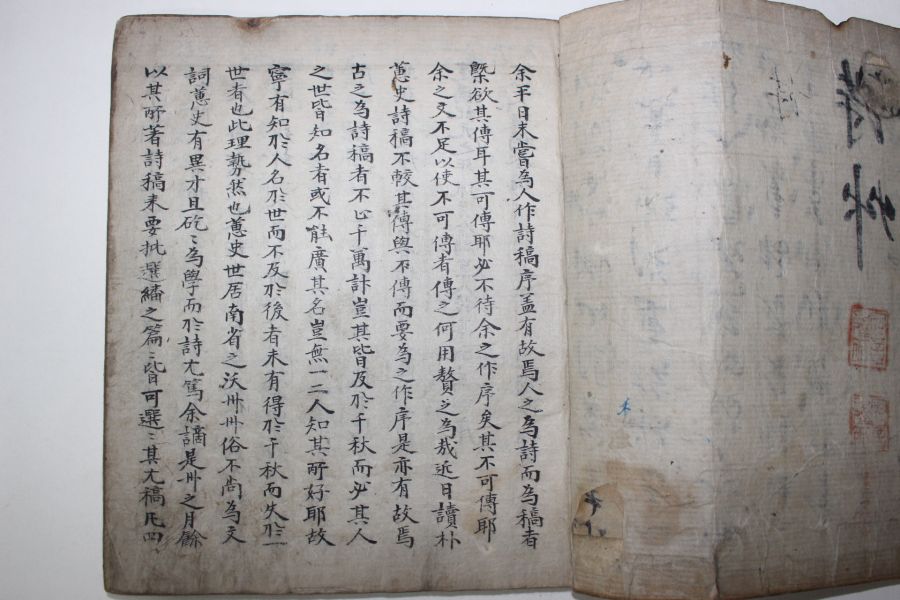 余平日未嘗為人作詩稿序盖有故焉人之為詩而為稿者
槩欲其傳耳其可傳耶必不待余之作序矣其不可傳耶
余之文不足以使不可傳者傳之何用贅之為哉近日讀朴
蕙史詩稿不較其傳與不傳而要為之作序是亦有故焉
古之為詩稿者不止千萬計豈其皆及於千秋而必其人
之世皆知名者或不能廣其名豈無一二人知其所好耶故
寧有知於人名於世而不及於後者未有得於千秋而失於一
世者也此理勢然也蕙史世居南省之沃州州俗不尙為文
詞蕙史有異才且矻〻為學而於詩尤篤余謫是州之月餘
以其所著詩稿来要批選繙之篇〻皆可選〻其尤稿凡四